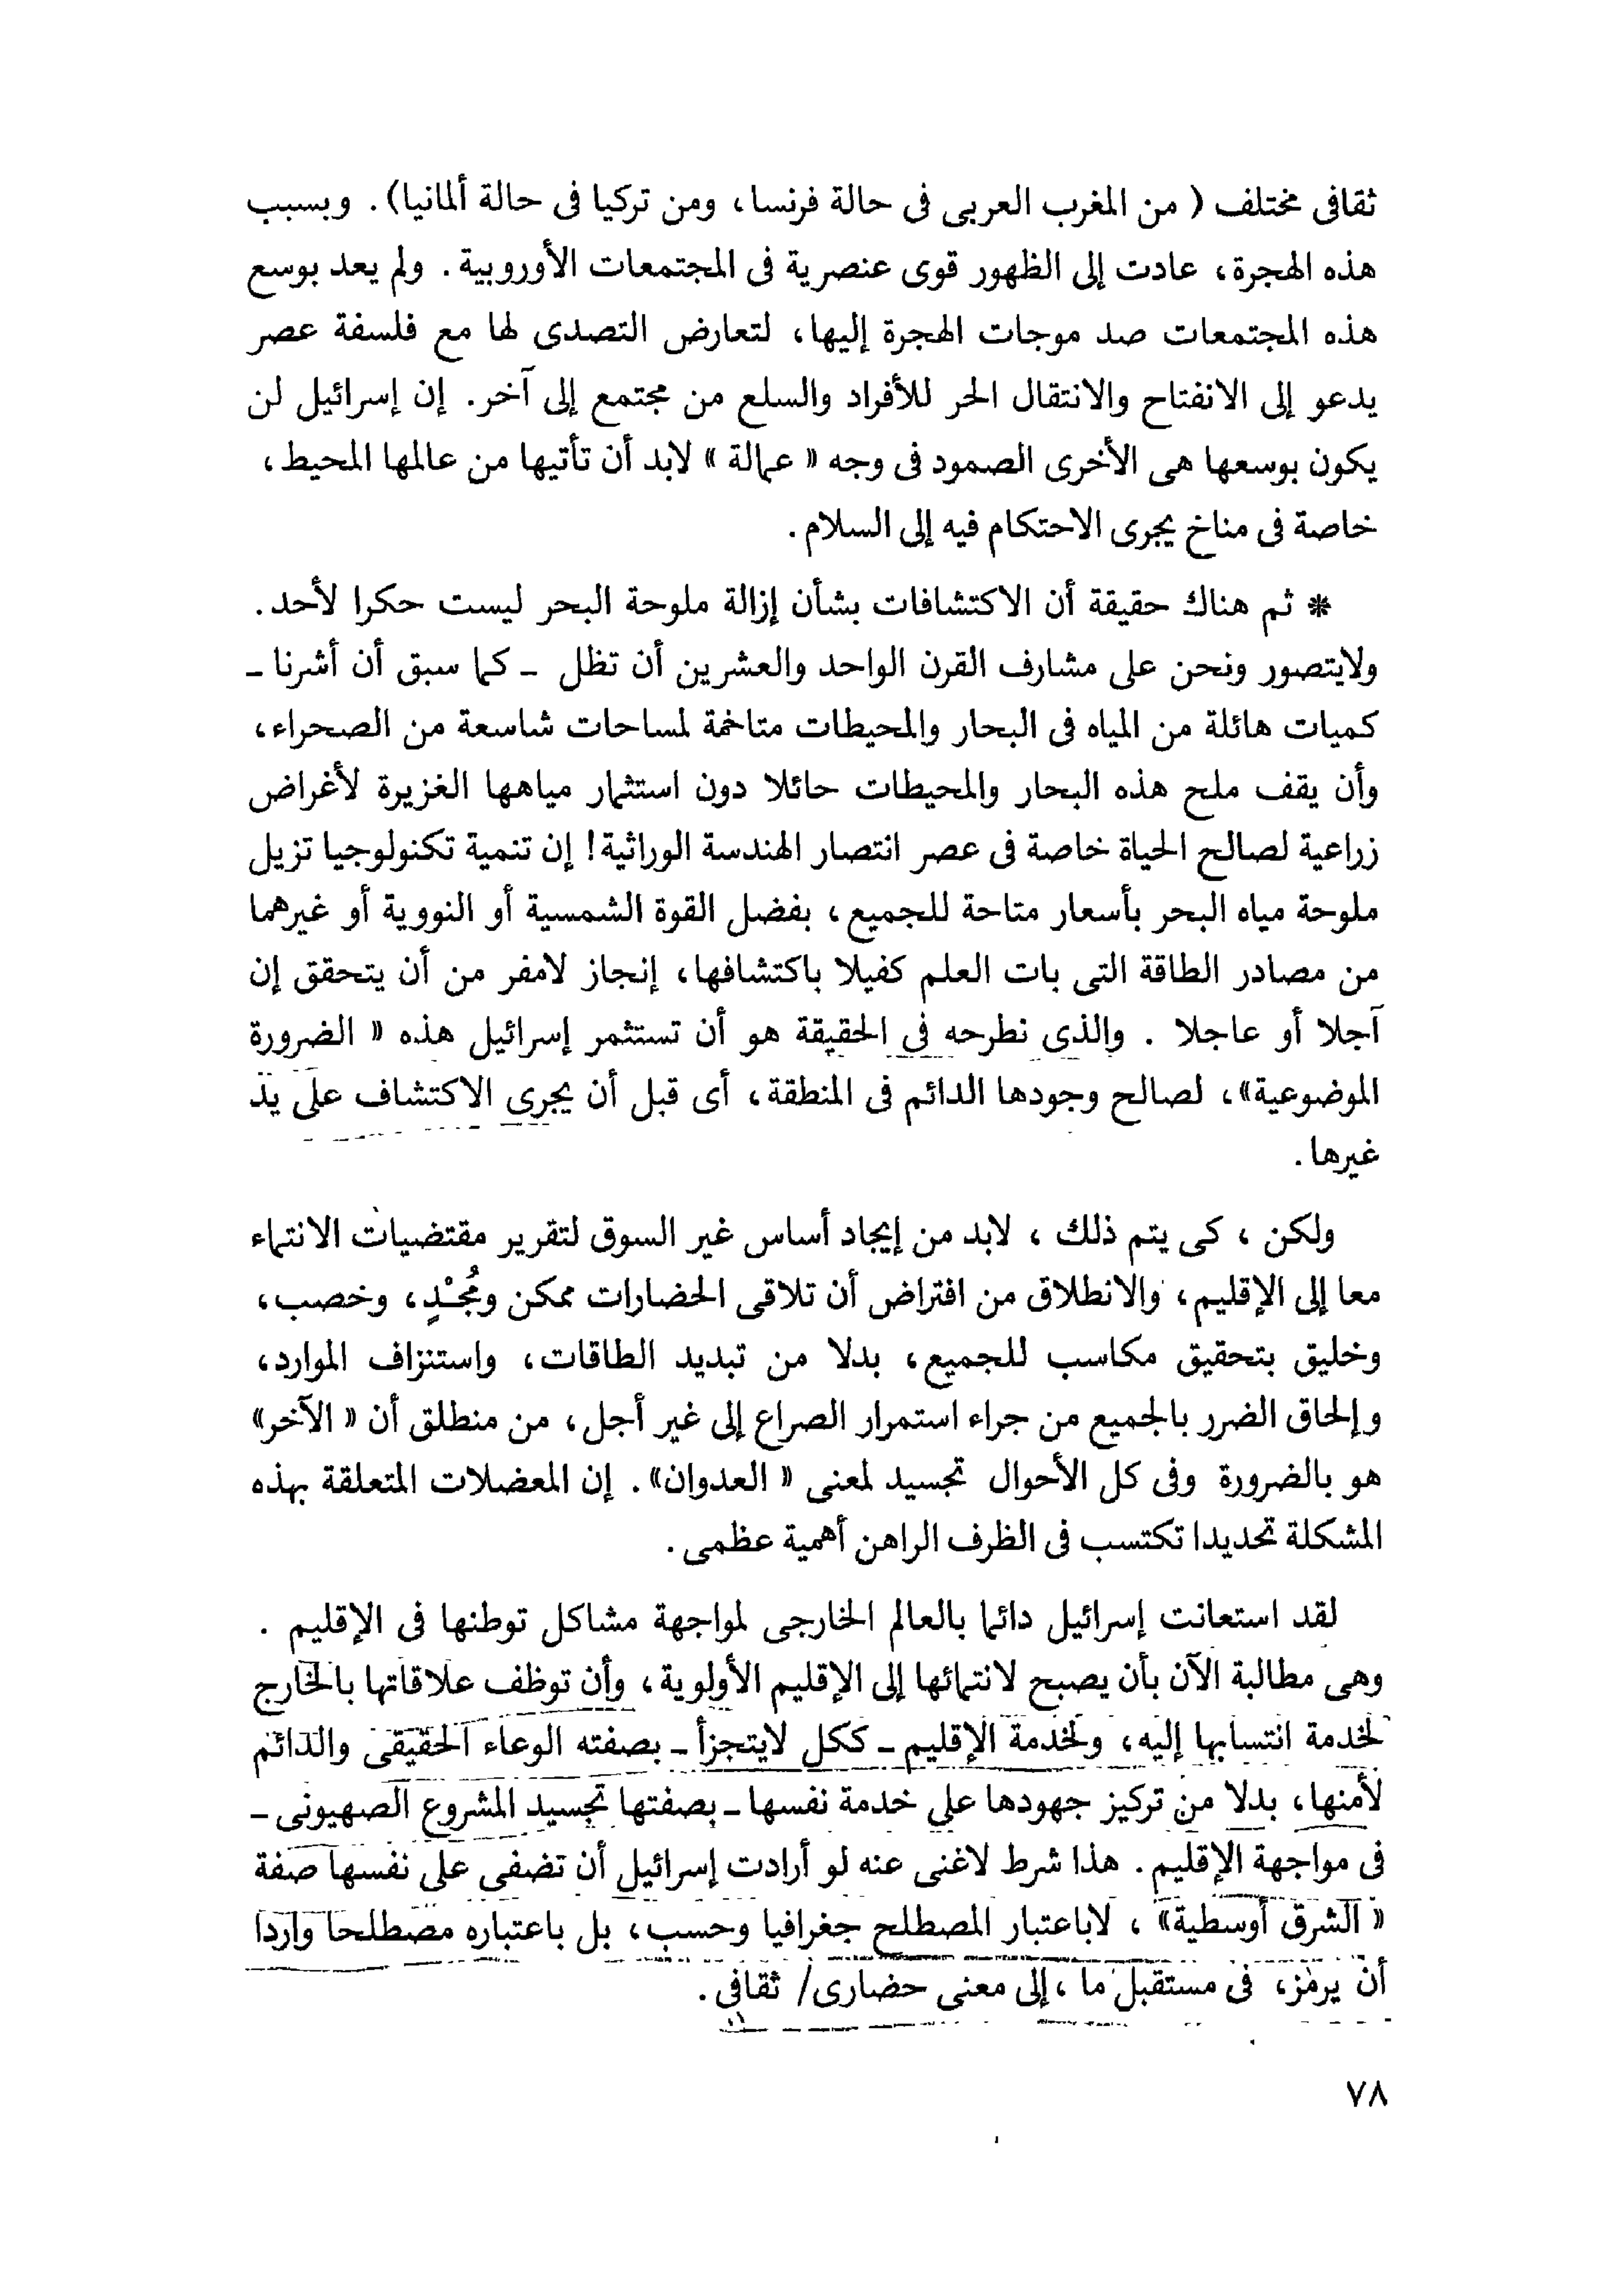 ثقافى مختلف ( من المغرب العربى فى حالة فرنسا، ومن تركيا فى حالة ألمانيا). وبسبب
هذه الهجرة، عادت إلى الظهور قوى عنصرية فى المجتمعات الأوروبية. ولم يعد بوسع
هذه المجتمعات صد موجات الهجرة إليها، لتعارض التصدى لها مع فلسفة عصر
يدعو إلى الانفتاح والانتقال الحر للأفراد والسلع من مجتمع إلى آخر. إن إسرائيل لن
يكون بوسعها هى الأخرى الصمود فى وجه « عمالة » لابد أن تأتيها من عالمها المحيط،
خاصة فى مناخ يجرى الاحتكام فيه إلى السلام.
* ثم هناك حقيقة أن الاكتشافات بشأن إزالة ملوحة البحر ليست حكرا لأحد.
ولايتصور ونحن على مشارف القرن الواحد والعشرين أن تظل ـ كما سبق أن أشرنا ـ
كميات هائلة من المياه فى البحار والمحيطات متاخمة لمساحات شاسعة من الصحراء،
وأن يقف ملح هذه البحار والمحيطات حائلا دون استثمار مياهها الغزيرة لأغراض
زراعية لصالح الحياة خاصة فى عصر انتصار الهندسة الوراثية! إن تنمية تكنولوجيا تزيل
ملوحة مياه البحر بأسعار متاحة للجميع، بفضل القوة الشمسية أو النووية أو غيرهما
من مصادر الطاقة التى بات العلم كفيلا باكتشافها، إنجاز لامفر من أن يتحقق إن
آجلا أو عاجلا . والذى نطرحه فى الحقيقة هو أن تستثمر إسرائيل هذه « الضرورة
الموضوعية»، لصالح وجودها الدائم فى المنطقة، أى قبل أن يجرى الاكتشاف على يد
غيرها.
ولكن ، كى يتم ذلك ، لابد من إيجاد أساس غير السوق لتقرير مقتضيات الانتماء
معا إلى الإقليم، والانطلاق من افتراض أن تلاقى الحضارات ممكن ومُجْدٍ، وخصب،
وخليق بتحقيق مكاسب للجميع، بدلا من تبديد الطاقات، واستنزاف الموارد،
وإلحاق الضرر بالجميع من جراء استمرار الصراع إلى غير أجل، من منطلق أن « الآخر»
هو بالضرورة وفى كل الأحوال تجسيد لمعنى « العدوان». إن المعضلات المتعلقة بهذه
المشكلة تحديدا تكتسب فى الظرف الراهن أهمية عظمى.
لقد استعانت إسرائيل دائما بالعالم الخارجى لمواجهة مشاكل توطنها فى الإقليم .
وهى مطالبة الآن بأن يصبح لانتمائها إلى الإقليم الأولوية، وأن توظف علاقاتها بالخارج
لخدمة انتسابها إليه، ولخدمة الإقليم ـ ككل لايتجزأ ـ بصفته الوعاء الحقيقى والدائم
لأمنها، بدلا من تركيز جهودها على خدمة نفسها ـ بصفتها تجسيد المشروع الصهيونى ـ
فى مواجهة الإقليم. هذا شرط لاغنى عنه لو أرادت إسرائيل أن تضفى على نفسها صفة
« الشرق أوسطية» ، لاباعتبار المصطلح جغرافيا وحسب، بل باعتباره مصطلحا واردا
أن يرمز، فى مستقبل ما ، إلى معنى حضارى/ ثقافى.
٧٨